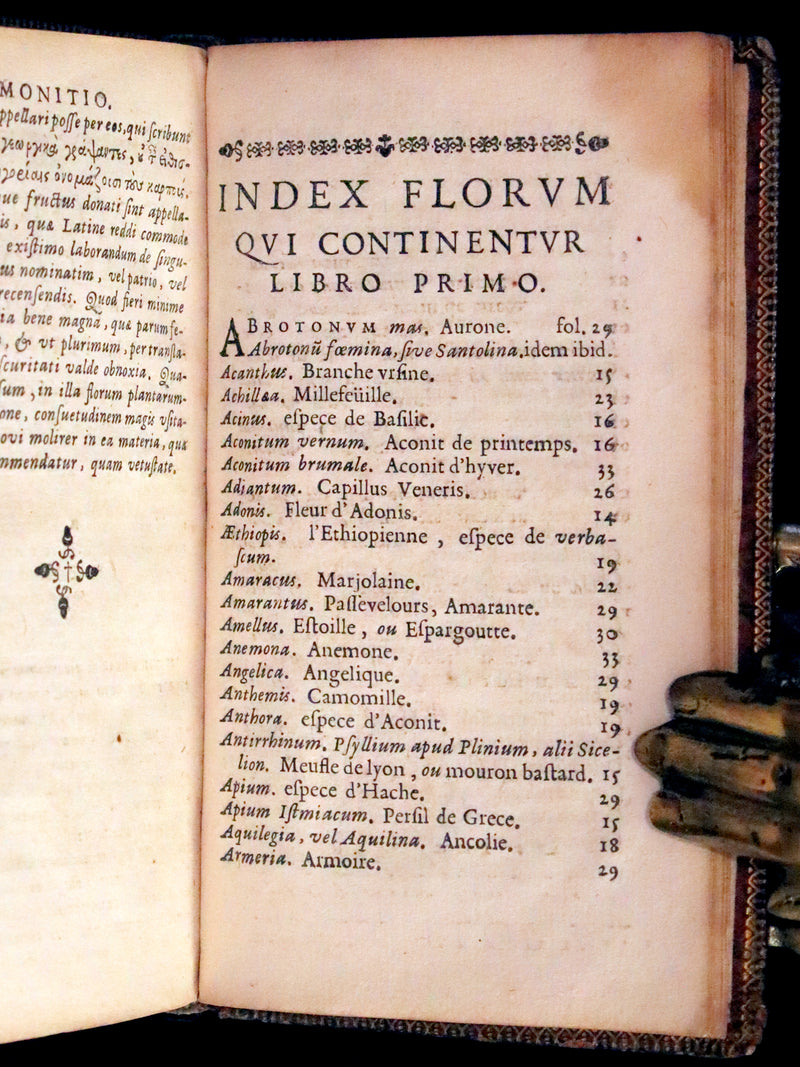 MONITIO.
ppellari posse per eos, qui scribunt
ue fructus donati sint appella-
is, quæ Latine reddi commode
existimo laborandum de singu-
us nominatim, vel patrio, vel
recensendis. Quod fieri minime
ia bene magna, qua parum fe-
, & vt plurimum, per transla-
curitati valde obnoxia. Qua-
sum, in illa florum plantarum-
one, consuetudinem magis vsita-
ovi molirer in ea materia, quæ
mmendatur, quam vetustate.
INDEX FLORVM
QVI CONTINENTVR
LIBRO PRIMO.
ABROTONVM mas. Aurone. fol. 29
Abrotonū fœmina, ſive Santolina. idem ibid.
Acanthus. Branche vrſine. 15
Achillæa. Millefeüille. 23
Acinus. eſpeçe de Baſilic. 16
Aconitum vernum. Aconit de printemps. 16
Aconitum brumale. Aconit d'hyver. 33
Adiantum. Capillus Veneris. 26
Adonis. Fleur d'Adonis. 14
Æthiopis. l'Ethiopienne, eſpece de verba-
ſcum. 19
Amaracus. Marjolaine. 22
Amarantus. Paſſevelours, Amarante. 29
Amellus. Eſtoille, ou Eſpargoutte. 30
Anemona. Anemone. 33
Angelica. Angelique. 29
Anthemis. Camomille. 19
Anthora. eſpece d'Aconit. 19
Antirrhinum. Pſyllium apud Plinium, alii Sice-
lion. Meufle de lyon, ou mouron baſtard. 15
Apium. eſpece d'Hache. 29
Apium Iſtmiacum. Perſil de Grece. 15
Aquilegia, vel Aquilina. Ancolie. 18
Armeria. Armoire. 29